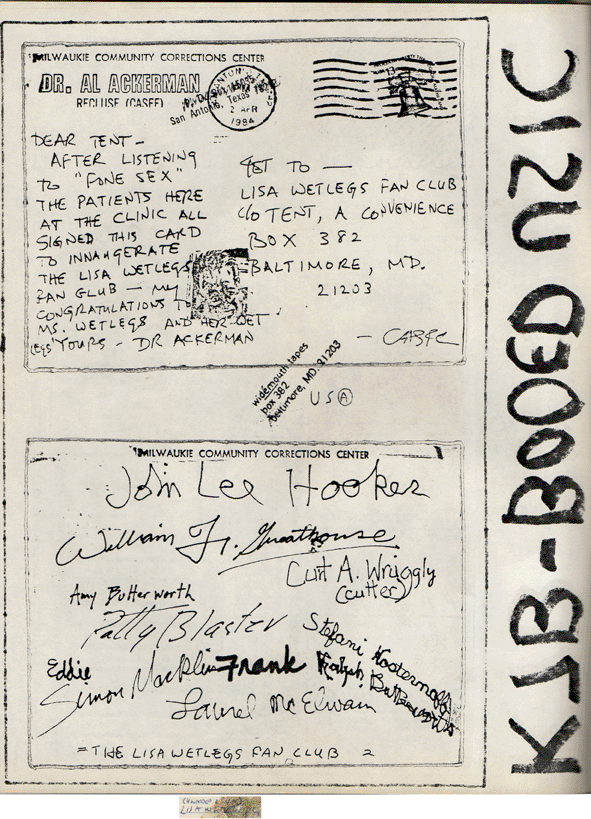 MILWAUKIE COMMUNITY CORRECTIONS CENTER
DR. AL ACKERMAN
RECLUSE (CASEF)
San Antonio, Texas
2 APR
1984
DEAR TENT -
AFTER LISTENING
TO "FONE SEX"
THE PATIENTS HERE
AT THE CLINIC ALL
SIGNED THIS CARD
TO INNAUGERATE
THE LISA WETLEGS
FAN CLUB - MY
CONGRATULATIONS TO
MS. WETLEGS AND HER WET
LEGS YOURS - DR ACKERMAN
GET TO —
LISA WETLEGS FAN CLUB
C/O TENT, A CONVENIENCE
BOX 382
BALTIMORE, MD.
21203
widémouth tapes
box 382
baltimore, MD. 21203
USA
MILWAUKIE COMMUNITY CORRECTIONS CENTER
John Lee Hooker
William Jr. Greathouse
Curt A. Wriggly
(cutter)
Amy Butterworth
Patty Blaster
Stefani
Eddie
Simon Macklin
Frank
Ralph
Laurel McElwain
= THE LISA WETLEGS FAN CLUB 2